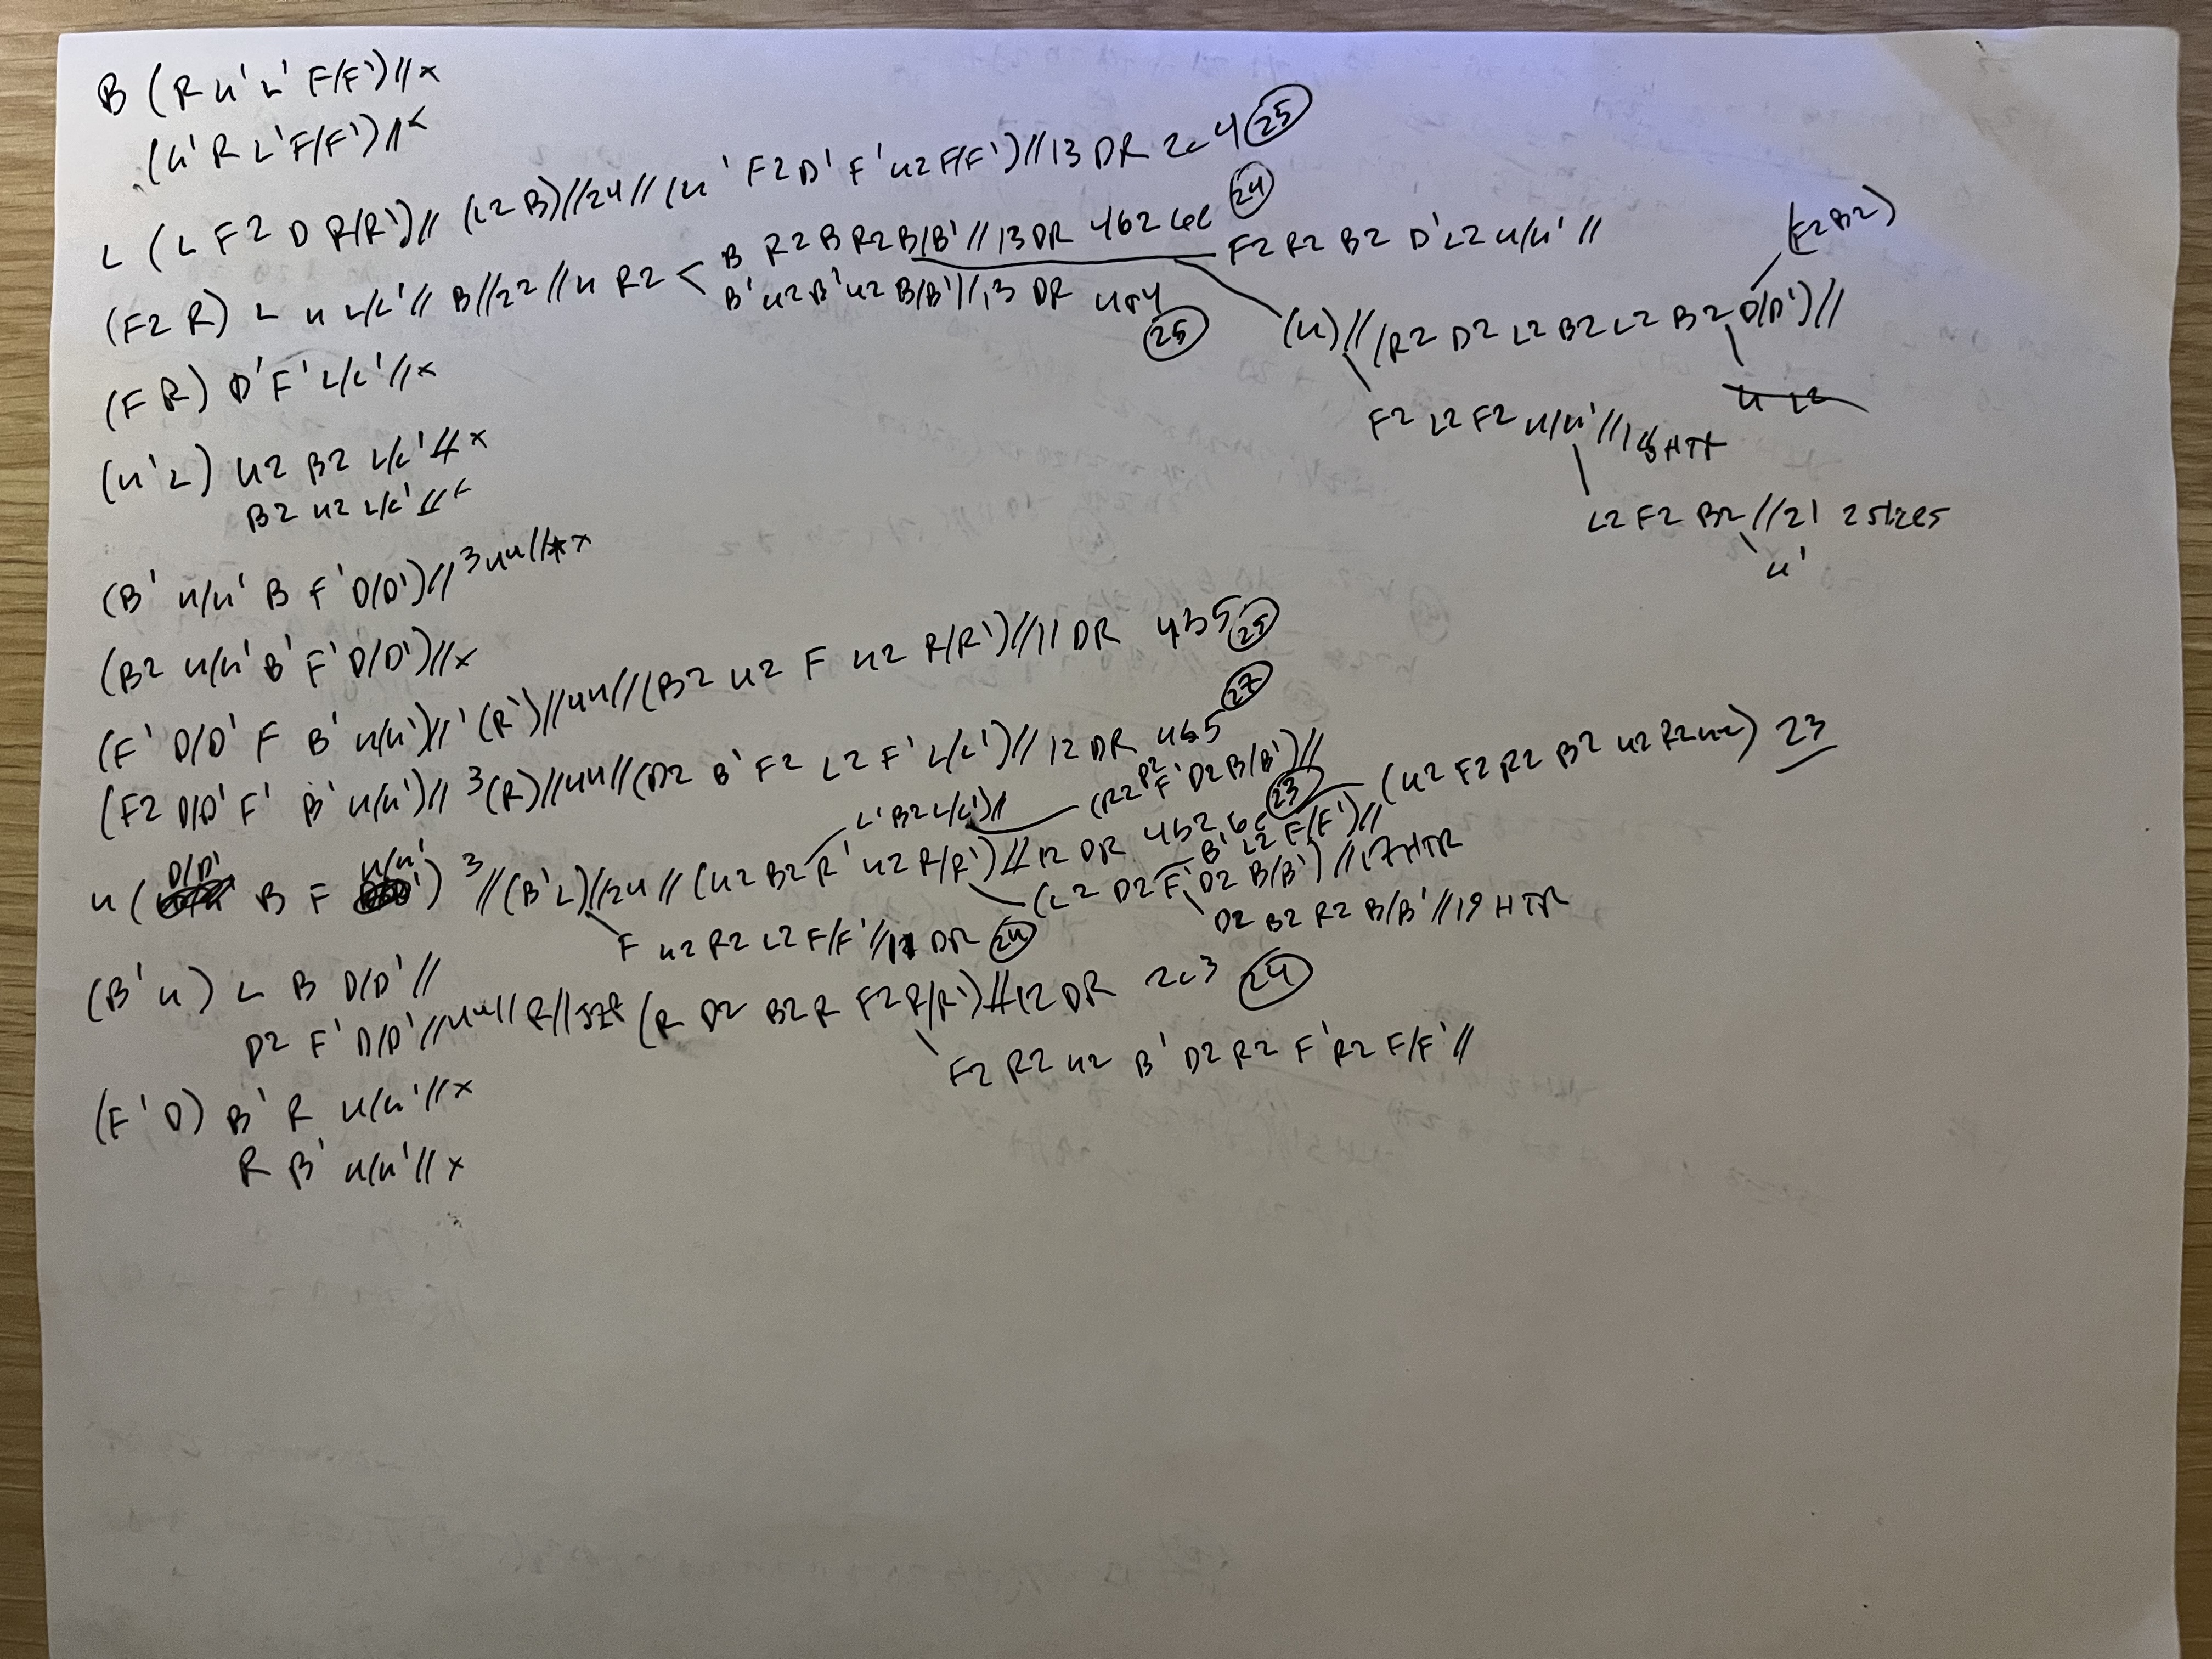 B (R u' L' F/F') // x
(u' R L' F/F') // x
L (L F2 D R/R') // (L2 B) // 24 // (u' F2 D' F' u2 F/F') // 13 DR 2c4 (25)
(F2 R) L u L/L' // B // 22 // u R2 < B R2 B R2 B/B' // 13 DR 4b2 (24) F2 R2 B2 D' L2 u/u' //
B' u2 B' u2 B/B' // 13 DR (25)
(u) // (R2 D2 L2 B2 L2 B2 D/D') // (F2 B2)
F2 L2 F2 u/u' // HTR
L2 F2 B2 // 21 2 slices
u'
(F R) D' F' L/L' // x
(u' L) u2 B2 L/L' // x
B2 u2 L/L' // x
(B' u/u' B F' D/D') // 3 // x
(B2 u/u' B' F' D/D') // x
(F' D/D' F B' u/u') // (R') // 44 // (B2 u2 F u2 R/R') // 11 DR 4b5 (25)
(F2 D/D' F' B' u/u') // 3 (R) // 44 // (D2 B' F2 L2 F' L/L') // 12 DR 4b5 (27)
L' B2 L/L') // (R2 D2 F' D2 B/B') //
u (D/D' B F u/u') 3 // (B' L) // 24 // (u2 B2 R' u2 R/R') // 12 DR 4b2 (23) (u2 F2 R2 B2 u2 R2 u2) 23
B' L2 F/F') //
(L2 D2 F' D2 B/B') // 17 HTR
D2 B2 R2 B/B' // 19 HTR
F u2 R2 L2 F/F' // DR (24)
(B' u) L B D/D' //
D2 F' D/D' // 44 // R // (R D2 B2 R F2 R/R') // 12 DR 2c3 (24)
F2 R2 u2 B' D2 R2 F' R2 F/F' //
(F' D) B' R u/u' // x
R B' u/u' // x